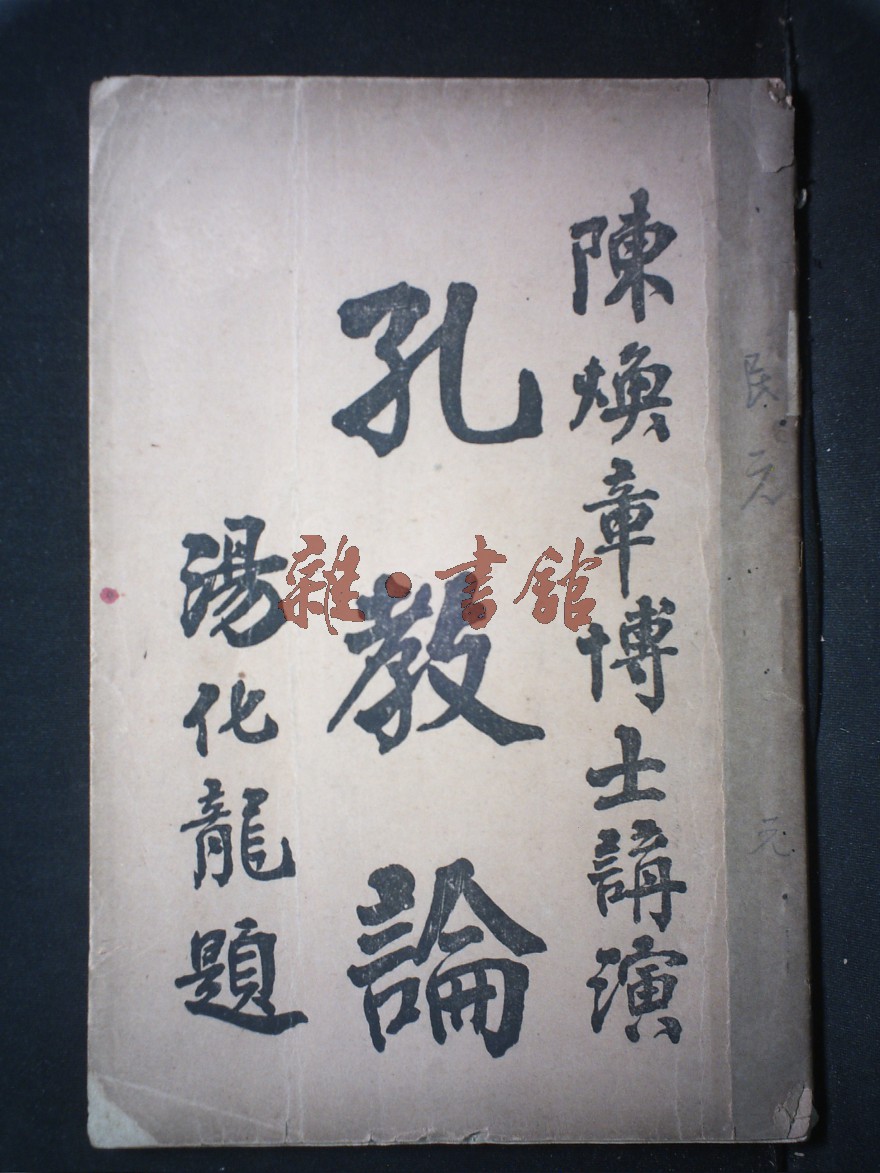 陳煥章博士講演
孔教論
湯化龍題
民元
元
雜·書館